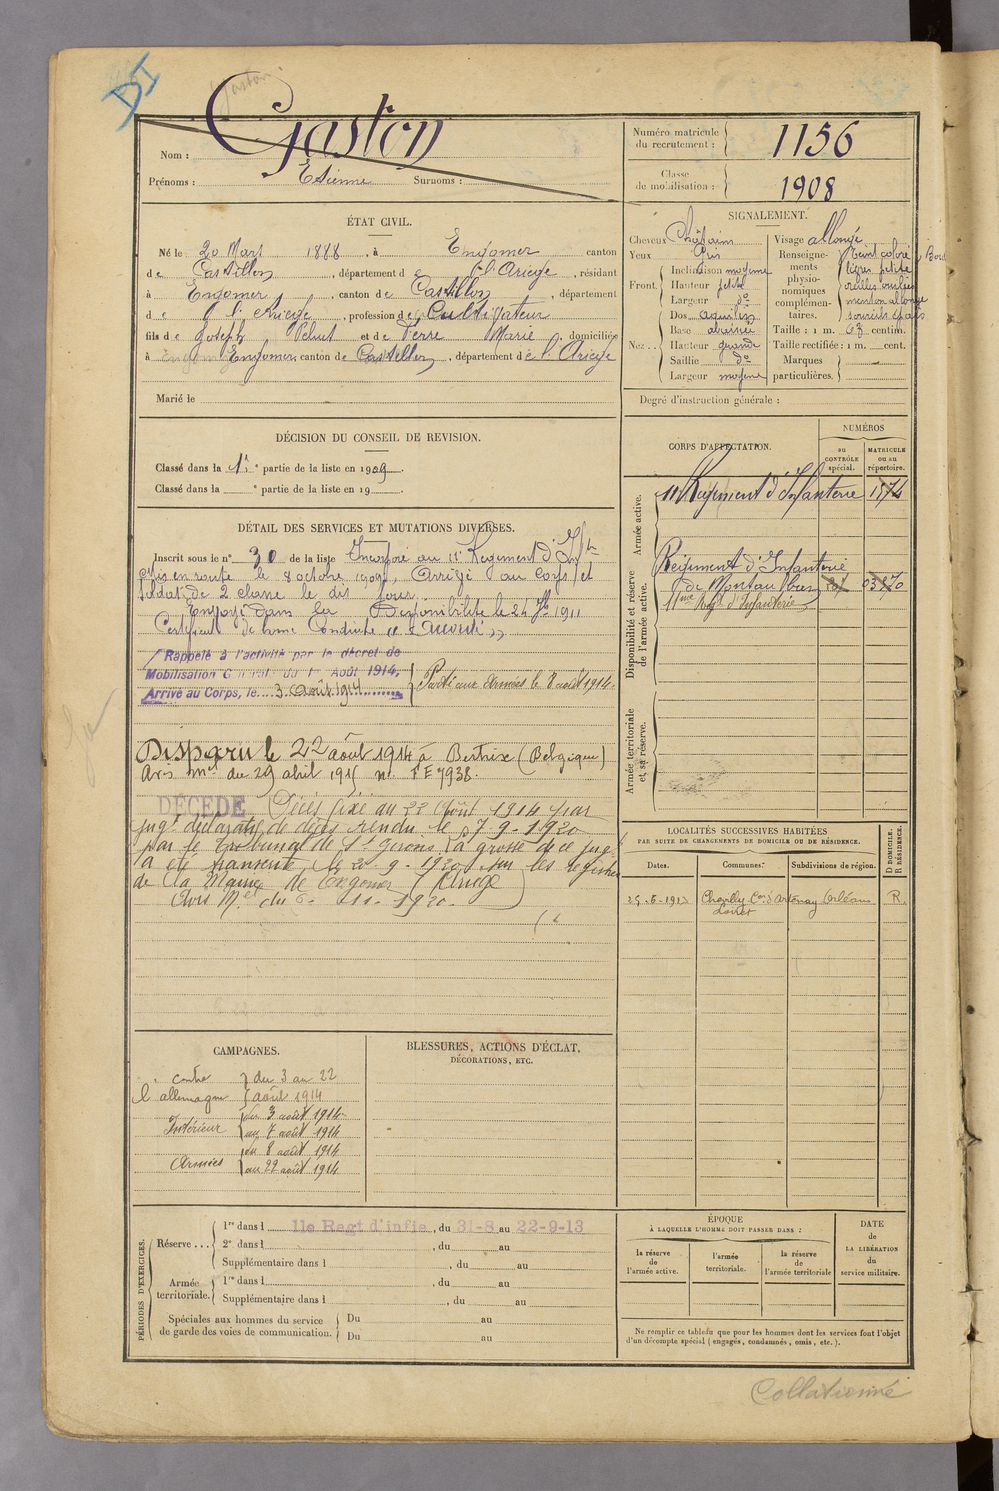 DI
Gaston
Nom : Gaston
Prénoms : Etienne Surnoms :
Numéro matricule du recrutement : 1156
Classe de mobilisation : 1908
ÉTAT CIVIL.
Né le 20 Mars 1888, à Engomer canton
de Castillon, département de l'Ariège, résidant
à Engomer, canton de Castillon, département
de l'Ariège, profession de Cultivateur
fils de Joseph et de Marie domiciliés
à Engomer, canton de Castillon, département de l'Ariège
Marié le
SIGNALEMENT.
Cheveux Châtains
Yeux Gris
Front. Inclinaison moyenne
Hauteur petite
Largeur do
Nez.. Dos aquilin
Base abaissée
Hauteur grande
Saillie do
Largeur moyenne
Visage allongé
Renseignements physionomiques complémentaires. Teint coloré
lèvres petites
menton allongé
sourcils épais
Taille : 1 m. 63 centim.
Taille rectifiée : 1 m. cent.
Marques particulières.
Degré d'instruction générale :
DÉCISION DU CONSEIL DE REVISION.
Classé dans la 1re partie de la liste en 1909.
Classé dans la e partie de la liste en 19 .
DÉTAIL DES SERVICES ET MUTATIONS DIVERSES.
Inscrit sous le n° 30 de la liste Incorporé au 11e Régiment d'Infie
mis en route le 8 octobre 1909, Arrivé au corps et
soldat de 2 classe le dit jour.
Envoyé dans la Disponibilité le 24 7bre 1911
Certificat de bonne Conduite "Accordé"
Rappelé à l'activité par le décret de
Mobilisation Générale du 1er Août 1914,
Arrivé au Corps, le 3 Août 1914
Parti aux Armées le 8 août 1914.
Disparu le 22 août 1914 à Bertrix (Belgique)
Avis mel du 29 abril 1915 n° FE 7938.
DÉCÉDÉ Décès fixé au 22 Août 1914 par
jugt déclaratif de décès rendu le 17-9-1920
par le Tribunal de St Girons. La grosse de ce jugt
a été transcrite le 20-9-1920 sur les registres
de la Mairie de Engomer (Ariège)
Avis Mel du 6-11-1920.
CORPS D'AFFECTATION.
NUMÉROS
au CONTRÔLE spécial.
MATRICULE ou au répertoire.
Armée active.
11e Régiment d'Infanterie 1574
Disponibilité et réserve de l'armée active.
Régiment d'Infanterie
de Montauban 03870
11ème Régt d'Infanterie
Armée territoriale et sa réserve.
LOCALITÉS SUCCESSIVES HABITÉES
PAR SUITE DE CHANGEMENTS DE DOMICILE OU DE RÉSIDENCE.
Dates. Communes. Subdivisions de région. D DOMICILE. R RÉSIDENCE.
25-6-1913 Chevilly Con d'Artenay Orléans R.
Loiret
CAMPAGNES.
contre l'allemagne du 3 au 22
août 1914
Intérieur du 3 août 1914
au 7 août 1914
Armées du 8 août 1914
au 22 août 1914
BLESSURES, ACTIONS D'ÉCLAT,
DÉCORATIONS, ETC.
PÉRIODES D'EXERCICES.
Réserve ... 1re dans l 11e Regt d'infie, du 31-8 au 22-9-13
2e dans l , du au
Supplémentaire dans l , du au
Armée territoriale. 1re dans l , du au
Supplémentaire dans l , du au
Spéciales aux hommes du service
de garde des voies de communication.
Du au
Du au
ÉPOQUE
À LAQUELLE L'HOMME DOIT PASSER DANS :
la réserve de l'armée active.
l'armée territoriale.
la réserve de l'armée territoriale
DATE de LA LIBÉRATION du service militaire.
Ne remplir ce tableau que pour les hommes dont les services font l'objet
d'un décompte spécial (engagés, condamnés, omis, etc.).
Collationné